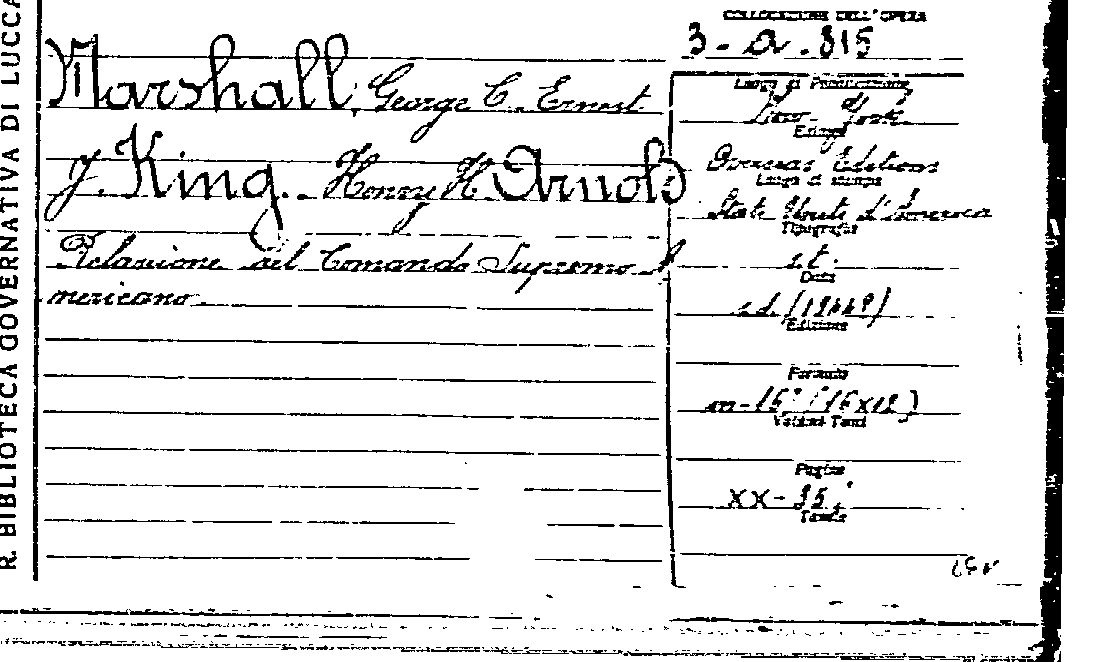 R. BIBLIOTECA GOVERNATIVA DI LUCCA
Marshall, George C. Ernest
J. King. - Henry H. Arnold
Relazione del Comando Supremo A
mericano.
COLLOCAZIONE DELL'OPERA
3 - a. 815
Luogo di Pubblicazione
New-York
Editore
Overseas Editions
Luogo di stampa
Stati Uniti d'America
Tipografia
s.t.
Data
s.d. (1944?)
Edizione
Formato
in-16° (16x12)
Volumi Tomi
Pagine
XX-
Tavole